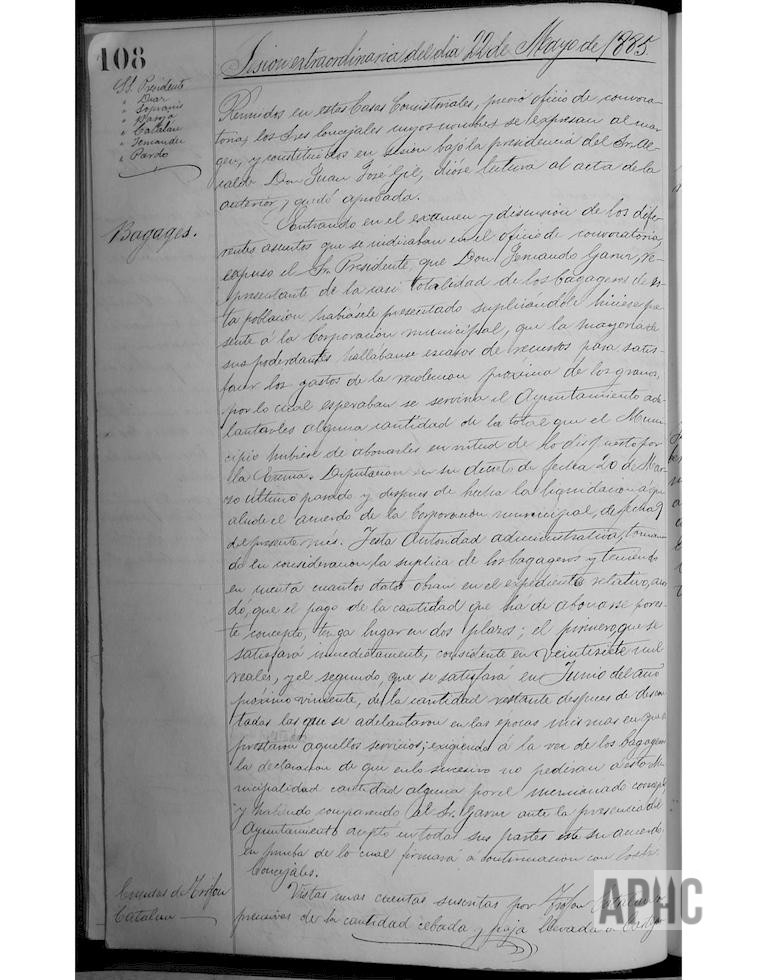 108
Sesion extraordinaria del dia 22 de Mayo de 1885.
SS. Presidente
" Diaz
" Sopranis
"
" Catalan
" Fernandez
" Pardo
Reunidos en estas Casas Consistoriales, previo oficio de convoca-
toria, los Sres Concejales cuyos nombres se expresan al mar-
gen, y constituidos en sesion bajo la presidencia del Sr. Al-
calde Don Juan José Gil, dióse lectura al acta de la
anterior y quedó aprobada.
Bagages.
Entrando en el examen y discusion de los dife-
rentes asuntos que se indicaban en el oficio de convocatoria,
expuso el Sr. Presidente, que Don Fernando re-
presentante de la casi totalidad de los bagageros de es-
ta poblacion habiasele presentado suplicandole hiciese pre-
sente á la Corporacion municipal, que la mayoria de
sus poderdantes hallábanse escasos de recursos para satis-
facer los gastos de la recoleccion próxima de los granos,
por lo cual esperaban se serviria el Ayuntamiento ade-
lantarles alguna cantidad de la total que el Muni-
cipio hubiese de abonarles en virtud de lo dispuesto por
la Excma. Diputacion en su decreto de fecha 20 de Mar-
zo último pasado y despues de hecha la liquidacion á que
alude el acuerdo de la Corporacion municipal, de fecha 9
del presente mes. Y esta Autoridad administrativa, toman-
do en consideracion la suplica de los bagageros y teniendo
en cuenta cuantos datos obran en el expediente relativo, acor-
dó, que el pago de la cantidad que há de abonarse por es-
te concepto, tenga lugar en dos plazos; el primero, que se
satisfará inmediatamente, consistente en veintisiete mil
reales, y el segundo, que se satisfará en Junio del año
próximo viniente, de la cantidad restante despues de descon-
tadas las que se adelantaron en las épocas mismas en que
prestaron aquellos servicios; exigiendo á la vez de los bagageros
la declaracion de que en lo sucesivo no pedirian a esta Mu-
nicipalidad cantidad alguna por el mencionado concepto,
y habiendo comparecido el Sr. ante la presencia del
Ayuntamiento aceptó en todas sus partes este su acuerdo,
en prueba de lo cual firmará á continuacion con los Sres
Concejales.
Cuentas de Trófon
Catalan
Vistas unas cuentas suscritas por Trófon Catalan
de la cantidad cebada y paja llevada á
APHC